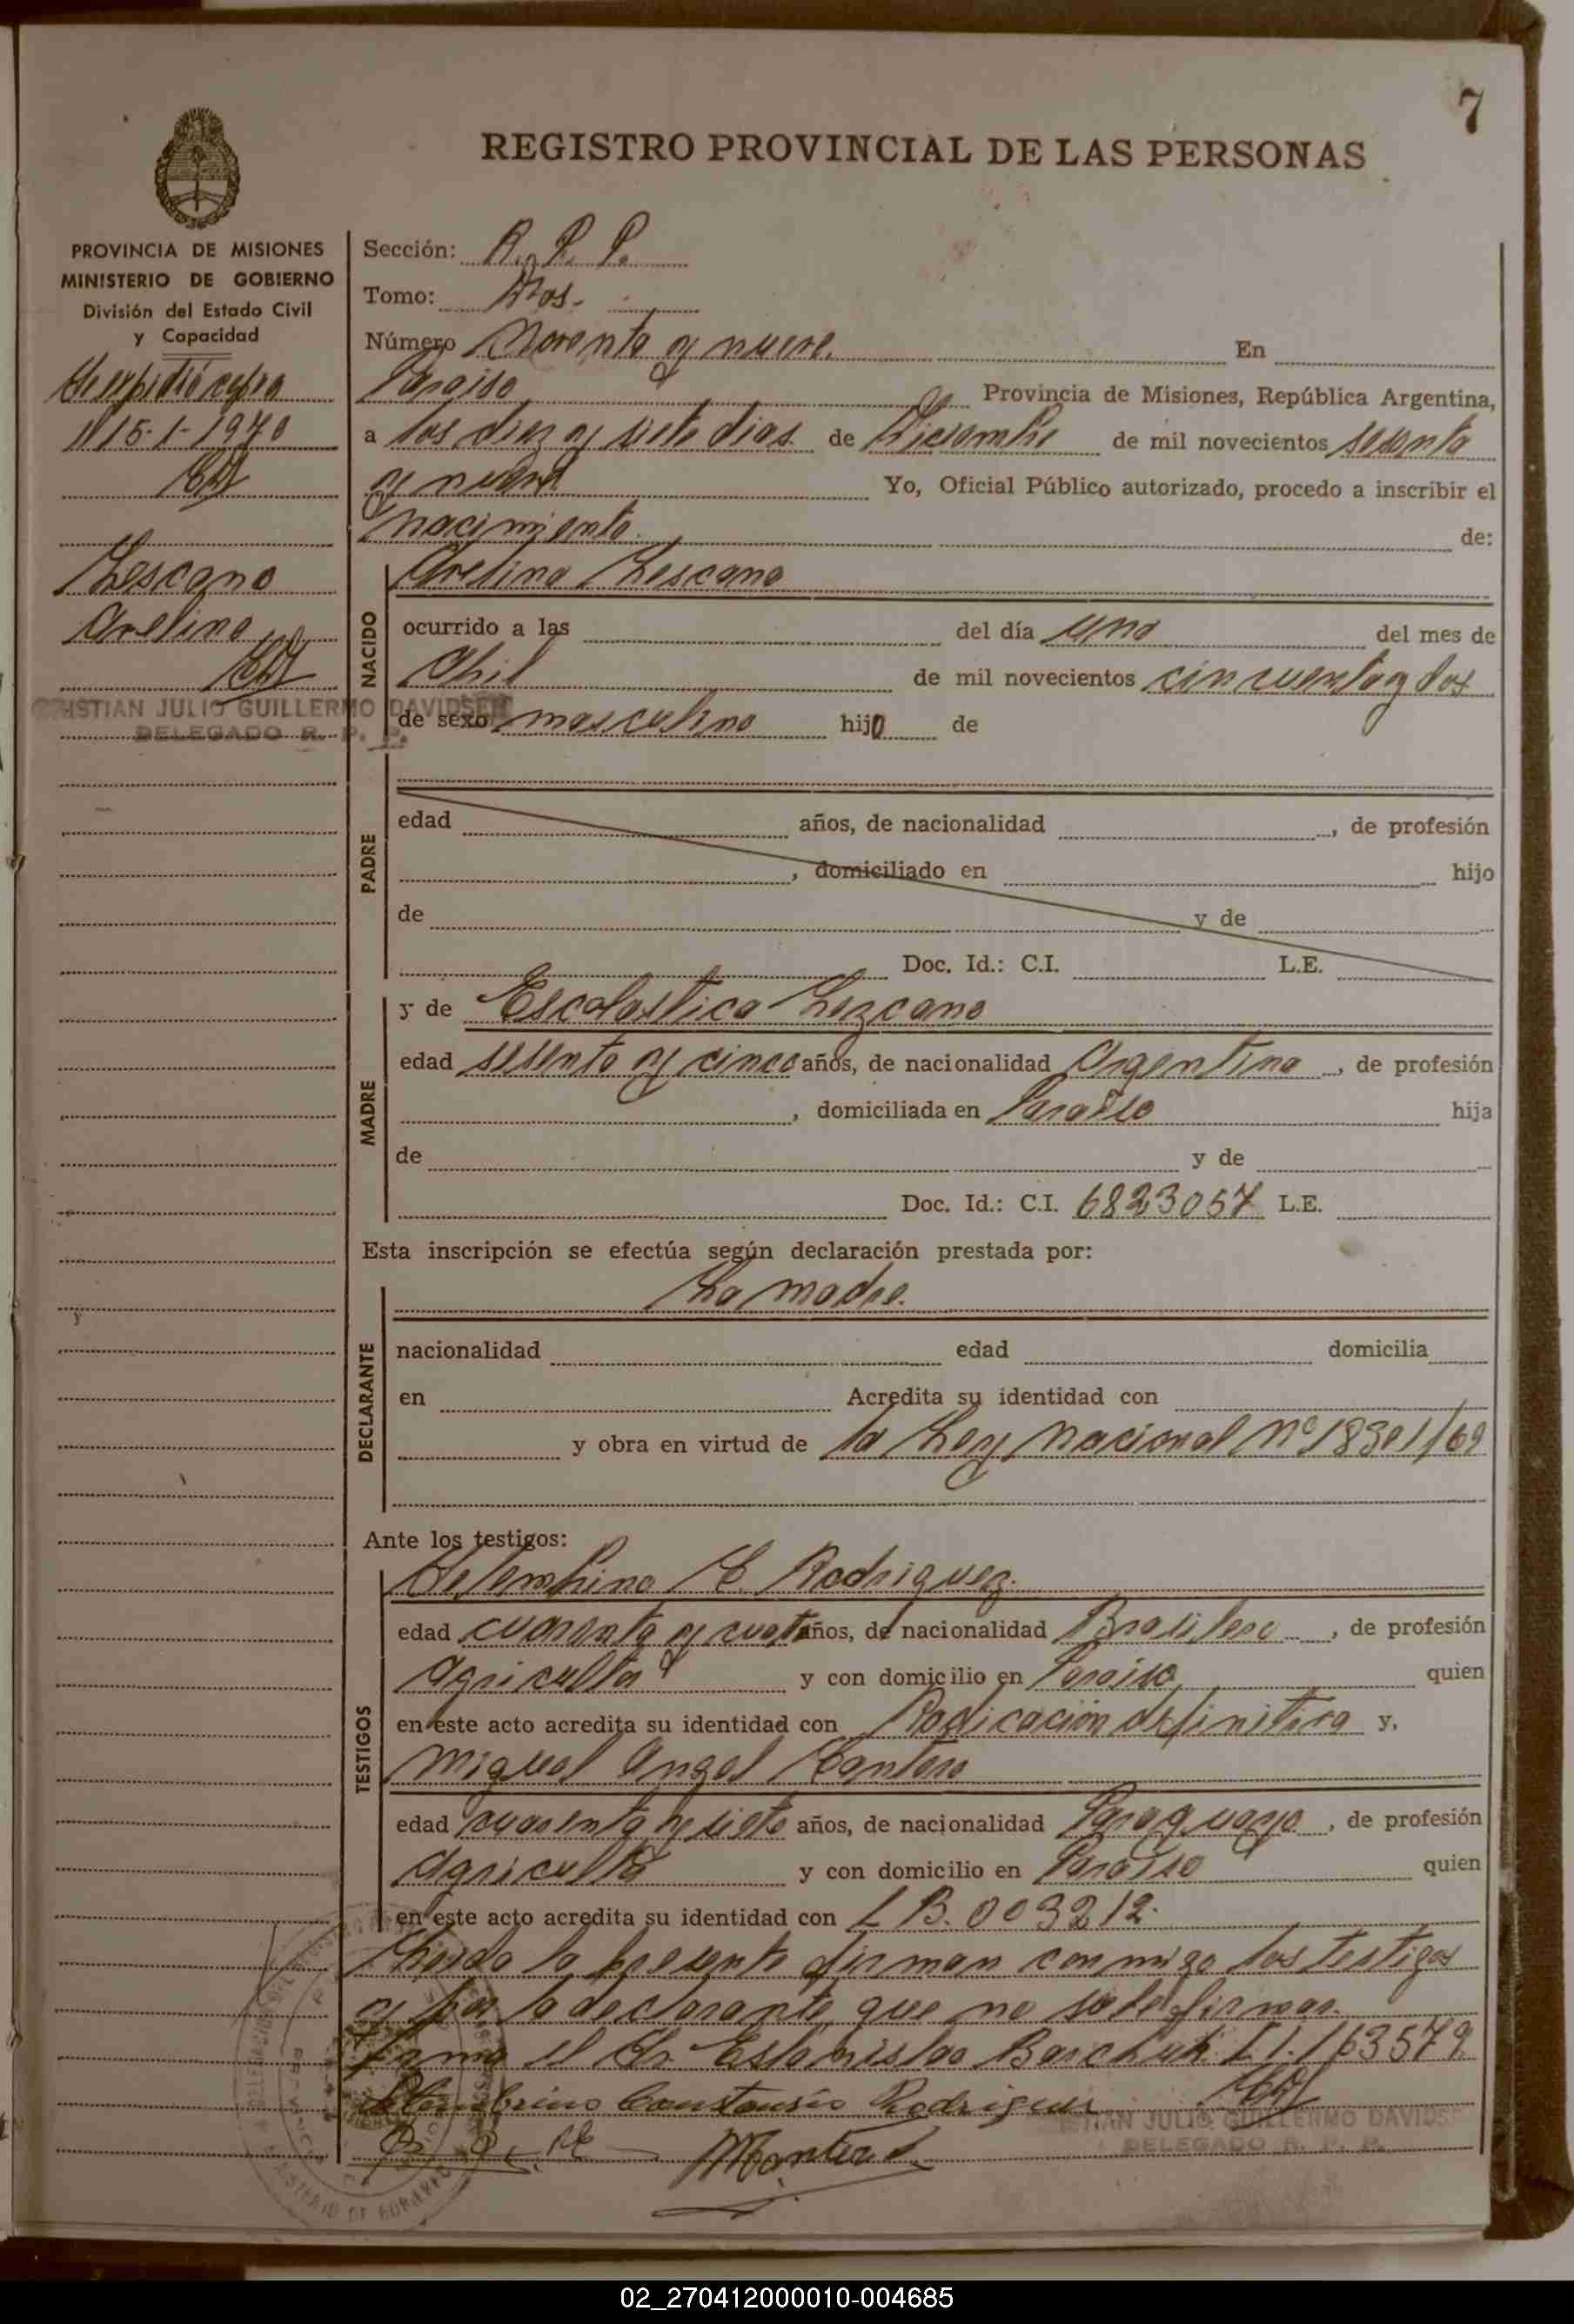 7
REGISTRO PROVINCIAL DE LAS PERSONAS
PROVINCIA DE MISIONES
MINISTERIO DE GOBIERNO
División del Estado Civil
y Capacidad
Se expidió copia
15-1-1970
Lescano
Avelino
CRISTIAN JULIO GUILLERMO DAVIDSEN
DELEGADO R. P. P.
Sección: R. P. P.
Tomo: Dos-
Número Noventa y nueve. En
Paraiso Provincia de Misiones, República Argentina,
a los diez y siete dias de Diciembre de mil novecientos sesenta
y nueve Yo, Oficial Público autorizado, procedo a inscribir el
nacimiento de:
NACIDO
Avelino Lescano
ocurrido a las del día uno del mes de
Abril de mil novecientos cincuenta y dos
de sexo masculino hijo de
PADRE
edad años, de nacionalidad , de profesión
, domiciliado en hijo
de y de
Doc. Id.: C.I. L.E.
MADRE
y de Escolastica Lezcano
edad sesenta y cinco años, de nacionalidad Argentina , de profesión
, domiciliada en Paraiso hija
de y de
Doc. Id.: C.I. 6823057 L.E.
Esta inscripción se efectúa según declaración prestada por:
DECLARANTE
La madre.
nacionalidad edad domicilia
en Acredita su identidad con
y obra en virtud de la Ley Nacional Nº 18301/69
Ante los testigos:
TESTIGOS
Setembrino C. Rodriguez.
edad cuarenta y cuat años, de nacionalidad Brasilero , de profesión
Agricultor y con domicilio en Paraiso quien
en este acto acredita su identidad con Radicación definitiva y,
Miguel Angel Cantero
edad cuarenta y siete años, de nacionalidad Paraguayo , de profesión
Agricultor y con domicilio en Paraiso quien
en este acto acredita su identidad con L B. 003212.
Leida la presente firman conmigo los testigos
y por la declarante, que no sabe firmar.
firma el Sr. Estanislao 163579
Setembrino Constansio Rodriguez
CRISTIAN JULIO GUILLERMO DAVIDSEN
DELEGADO R. P. P.
MINISTERIO DE GOBIERNO
02_270412000010-004685